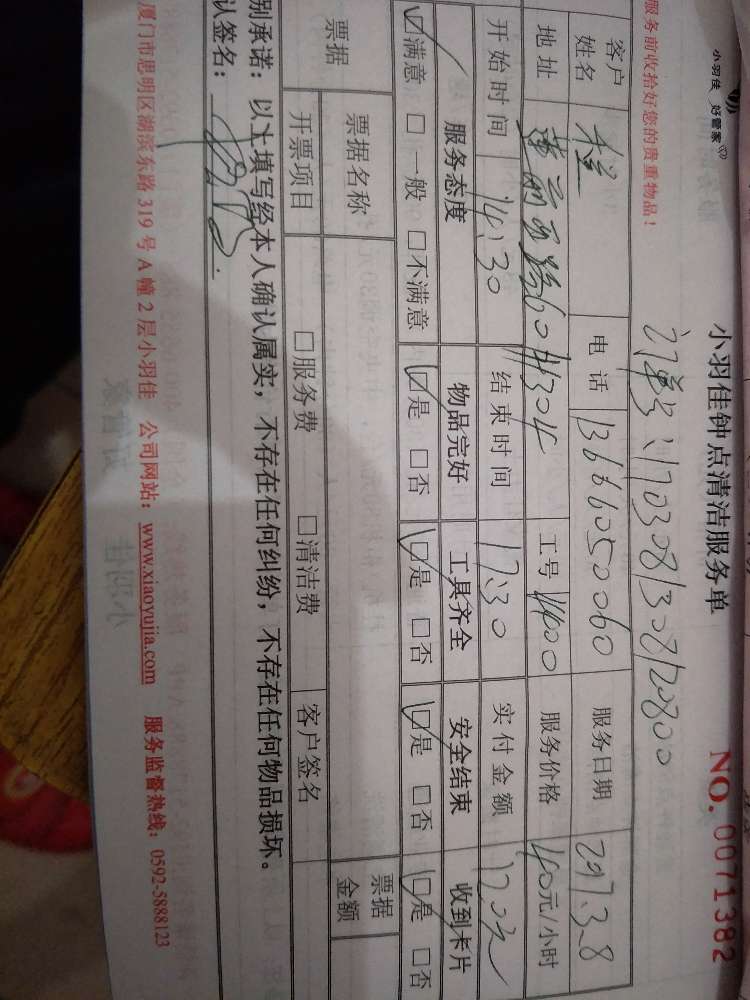 小羽佳 好管家
小羽佳钟点清洁服务单
NO. 0071382
服务前收拾好您的贵重物品!
订单号:1703081308120800
客户姓名 程 电话 13666050060 服务日期 2017.3.8
地址 60#304 工号 4400 服务价格 40元/小时
开始时间 14:30 结束时间 17:30 实付金额 120元
服务态度 物品完好 工具齐全 安全结束 收到卡片
☑满意 □一般 □不满意 ☑是 □否 ☑是 □否 ☑是 □否 ☑是 □否
票据 票据名称 票据金额
开票项目 □服务费 □清洁费 客户签名
别承诺:以上填写经本人确认属实,不存在任何纠纷,不存在任何物品损坏。
认签名:
厦门市思明区湖滨东路 319 号 A 幢 2 层小羽佳 公司网站:www.xiaoyujia.com 服务监督热线:0592-5888123